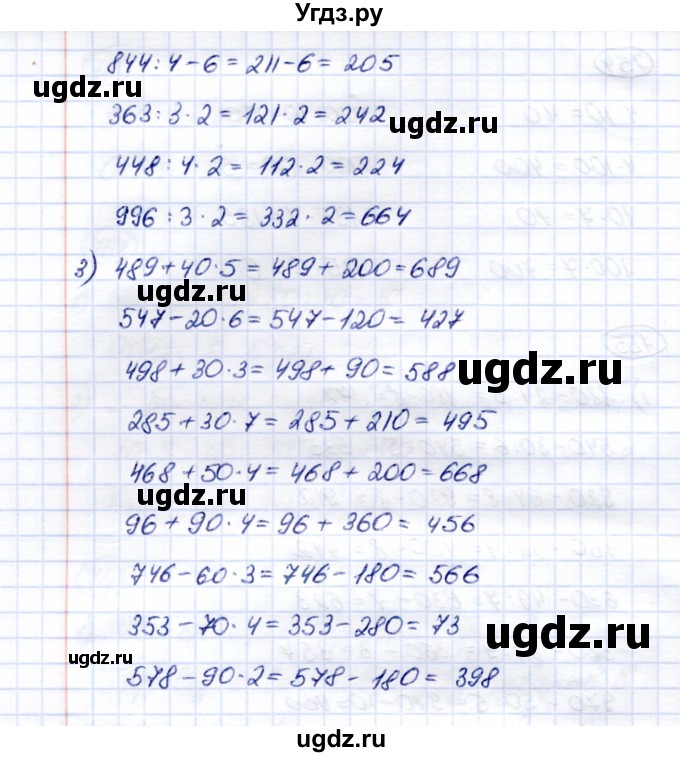 Угдз.ру
844:4-6=211-6=205
ugdz.ru
363:3·2=121·2=242
ugdz.ru
448:4·2=112·2=224
996:3·2=332·2=664
3) 489+40·5=489+200=689
ugdz.ru
547-20·6=547-120=427
498+30·3=498+90=588
ugdz.ru
285+30·7=285+210=495
468+50·4=468+200=668
ugdz.ru
96+90·4=96+360=456
746-60·3=746-180=566
353-70·4=353-280=73
ugdz.ru
ugdz.ru
578-90·2=578-180=398
ugdz.ru